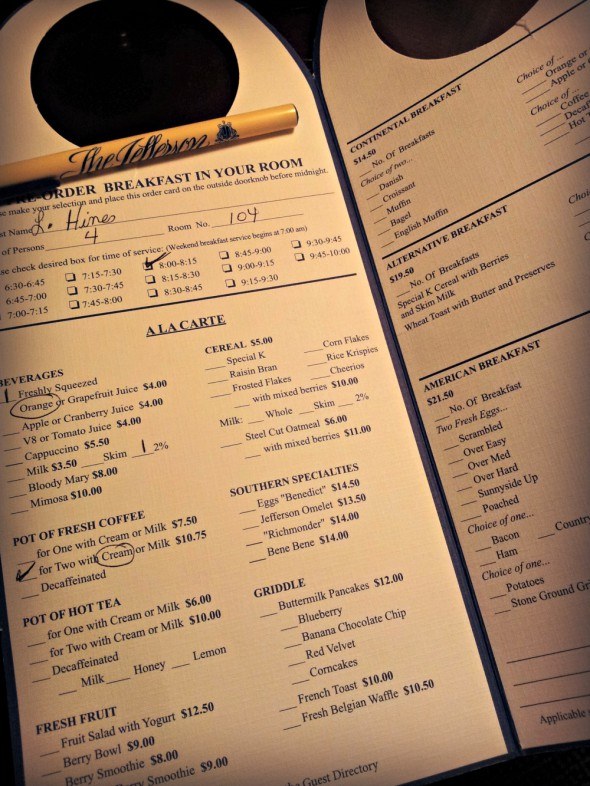 The Jefferson
ORDER BREAKFAST IN YOUR ROOM
make your selection and place this order card on the outside doorknob before midnight.
Name L. Hines
of Persons 4 Room No. 104
check desired box for time of service: (Weekend breakfast service begins at 7:00 am)
6:30-6:45 7:15-7:30 8:00-8:15 8:45-9:00 9:30-9:45
6:45-7:00 7:30-7:45 8:15-8:30 9:00-9:15 9:45-10:00
7:00-7:15 7:45-8:00 8:30-8:45 9:15-9:30
A LA CARTE
BEVERAGES
Freshly Squeezed
Orange or Grapefruit Juice $4.00
Apple or Cranberry Juice $4.00
V8 or Tomato Juice $4.00
Cappuccino $5.50
Milk $3.50 Skim 2%
Bloody Mary $8.00
Mimosa $10.00
POT OF FRESH COFFEE
for One with Cream or Milk $7.50
for Two with Cream or Milk $10.75
Decaffeinated
POT OF HOT TEA
for One with Cream or Milk $6.00
for Two with Cream or Milk $10.00
Decaffeinated
Milk Honey Lemon
FRESH FRUIT
Fruit Salad with Yogurt $12.50
Berry Bowl $9.00
Berry Smoothie $8.00
Smoothie $9.00
CEREAL $5.00
Special K Corn Flakes
Raisin Bran Rice Krispies
Frosted Flakes Cheerios
with mixed berries $10.00
Milk: Whole Skim 2%
Steel Cut Oatmeal $6.00
with mixed berries $11.00
SOUTHERN SPECIALTIES
Eggs "Benedict" $14.50
Jefferson Omelet $13.50
"Richmonder" $14.00
Bene Bene $14.00
GRIDDLE
Buttermilk Pancakes $12.00
Blueberry
Banana Chocolate Chip
Red Velvet
Corncakes
French Toast $10.00
Fresh Belgian Waffle $10.50
Guest Directory
CONTINENTAL BREAKFAST
$14.50
No. Of Breakfasts
Choice of two...
Danish
Croissant
Muffin
Bagel
English Muffin
Choice of ...
Orange or
Apple or
Choice of...
Coffee
Decaf
Hot
ALTERNATIVE BREAKFAST
$19.50
No. Of Breakfasts
Special K Cereal with Berries
and Skim Milk
Wheat Toast with Butter and Preserves
AMERICAN BREAKFAST
$21.50
No. Of Breakfast
Two Fresh Eggs...
Scrambled
Over Easy
Over Med
Over Hard
Sunnyside Up
Poached
Choice of one...
Bacon Country
Ham
Choice of one...
Potatoes
Stone Ground
Applicable